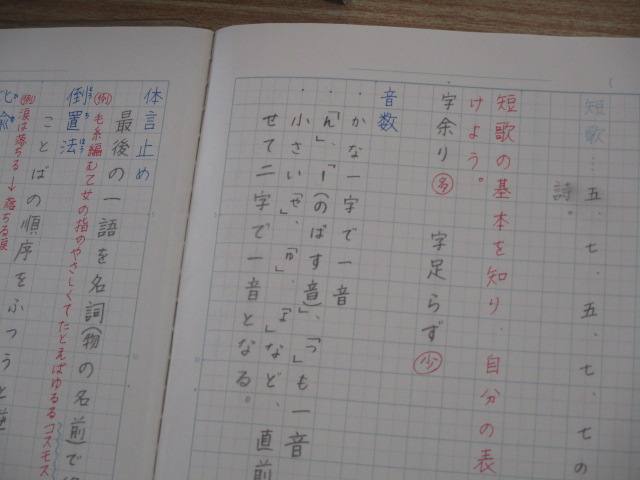 短歌……五、七、五、七、七の
詩。
短歌の基本を知り、自分の表
けよう。
字余り 多 字足らず 少
音数
・かな一字で一音
・「ん」、「ー」(のばす音)、「っ」も一音
・小さい「ゃ」、「ゅ」、「ょ」など、直前
せて二字で一音となる。
体言止め
最後の一語を名詞(物の名前)で
例 毛糸編むて女の指のやさしくてたとえばゆるるコスモス
倒置法
ことばの順序をふつうと逆
例 涙は落ちる→落ちる涙
比喩